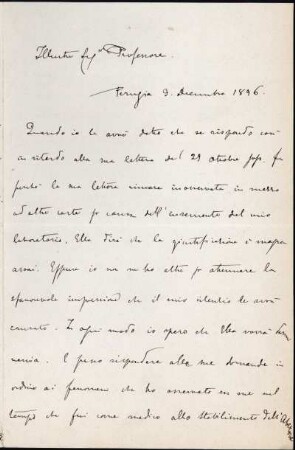 Illustre Sig.r Professore.
Perugia 3. Dicembre 1896.
Quando io le avrò detto che se rispondo con
un ritardo alla sua lettera del 29 ottobre pp. fu
perché la sua lettera rimase inosservata in mezzo
ad altre carte per causa dell'
laboratorio. Ella dirà che la giustificazione è magra
assai. Eppure io non ho altro per attenuare la
spiacevole impressione che il mio silenzio le avrà
causato. In ogni modo io spero che Ella vorrà
E passo rispondere alle sue domande in
ordine ai fenomeni che ho osservato in me nel
tempo che fui come medico allo stabilimento dell'